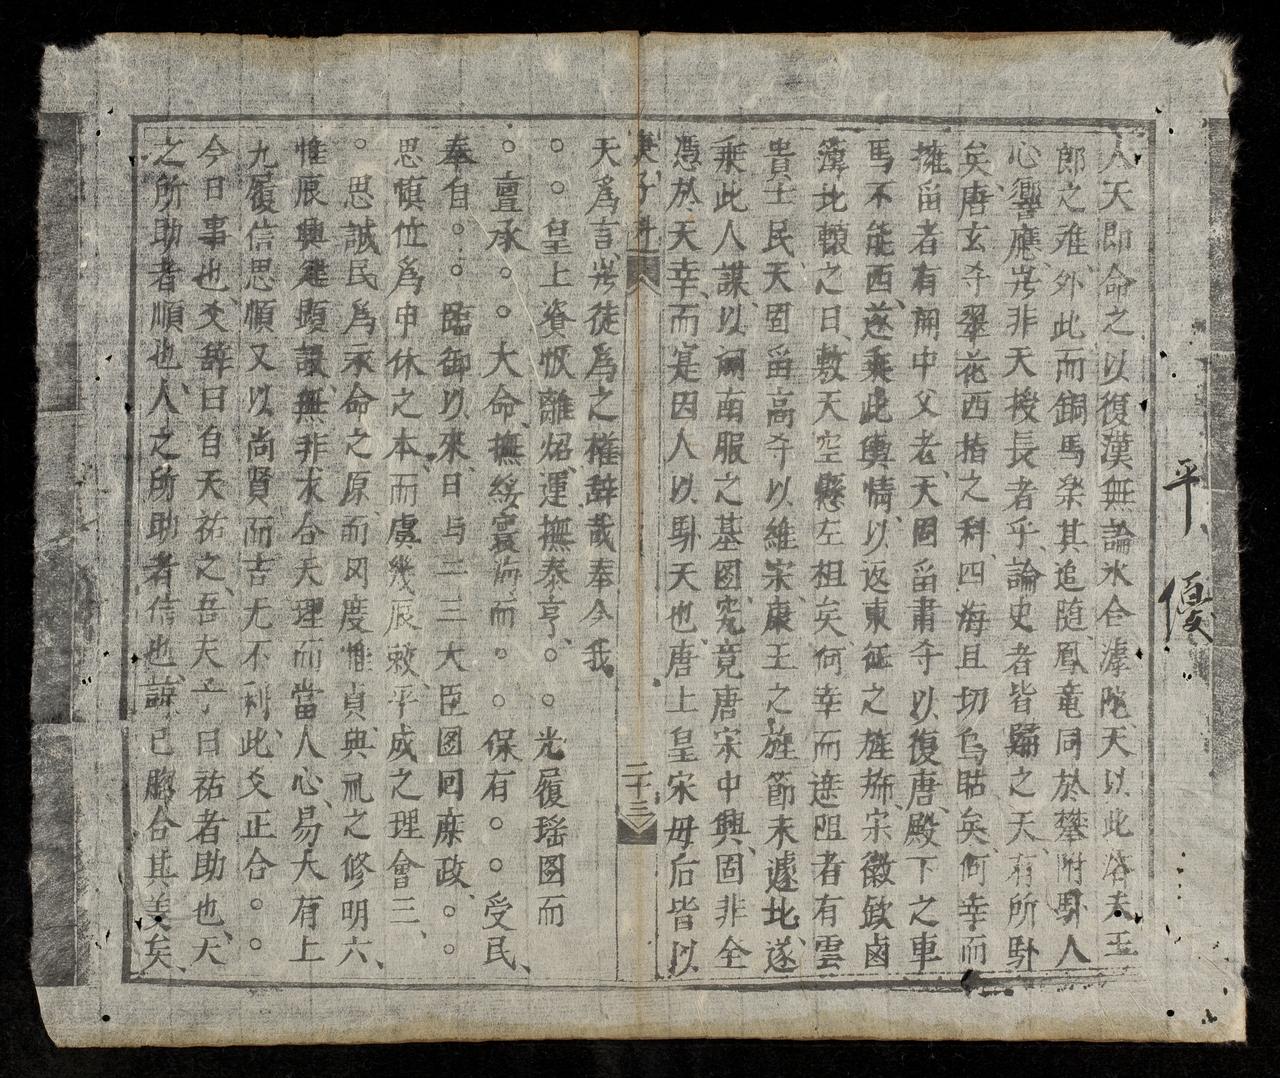 平 優
人天即命之以復漢無論氷合滹陀天以此啓夫王
郎之难、外此而銅馬柴其追随鳳竜同於攀附馭人
心響應、𠀧非天授長者乎、論史者皆歸之天、有所馭
矣、唐玄幸翠花西指之科、四海且切烏瞻矣、何幸而
擁留者有関中父老、天固留肅幸以復唐、殿下之車
馬不能西、遂乘此輿情以返東征之旌斾宋徽欽鹵
簿北轅之日、敷天空懸左袒矣何幸而遮阻者有雲
貴士民、天固留高幸以維宋、康王之旌節未遽北、遂
乘此人謀、以嗣南服之基图、究竟唐宋中興、固非全
憑於天幸、而寔因人以馭天也、唐上皇宋母后皆以
天為言、𠀧徒為之權辞哉奉今我
庚子科 二十三
○○皇上資恢離炤、運撫泰亨、○○光履瑶图而
○亶承○○大命、撫綏寰海、而○○保有○○受民、
奉自○○臨御以來、日与二三大臣图回庶政、○○
思慎位為申休之本、而虞幾辰敕、平成之理會三、
○思諴民為永命之原、而罔度惟貞、典礼之修明六、
惟辰興建顕設、無非求合天理而當人心、易大有上
九履信思順又以尚賢而吉无不利、此爻正合○○
今日事也、爻辞曰自天祐之、吾夫子曰祐者助也、天
之所助者順也、人之所助者信也、諒已脗合其美矣、